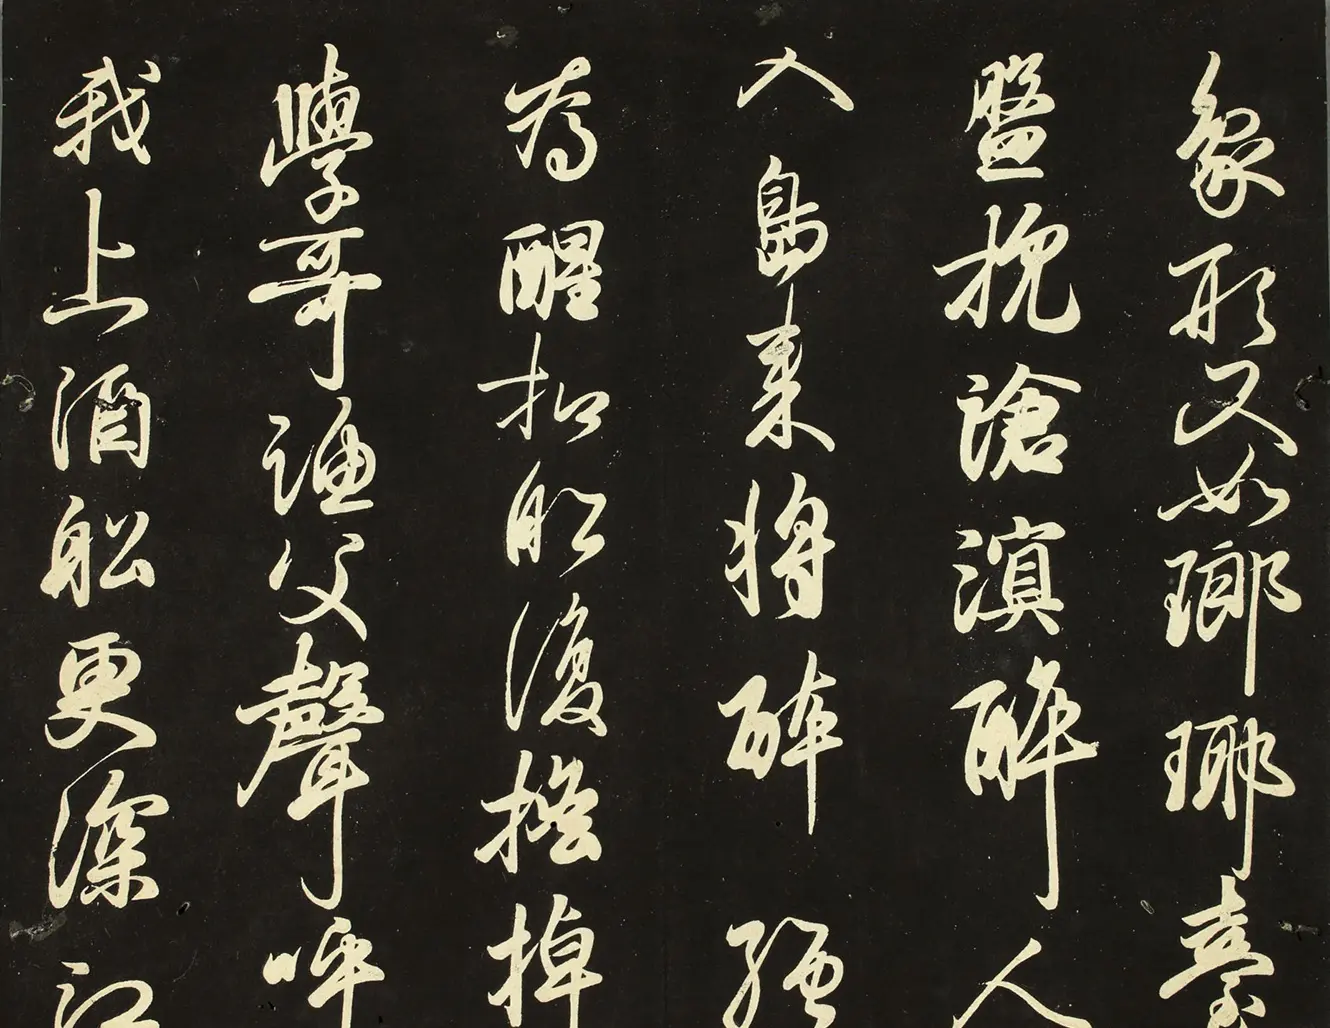 象形又如瑯琊臺
盤挽滄溟醉人
入島來將醉強
為醒扣船復攏掉
學哥漁父聲呼
我上酒船更深江